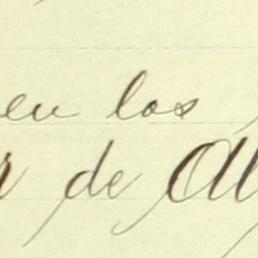 en los
r de Al